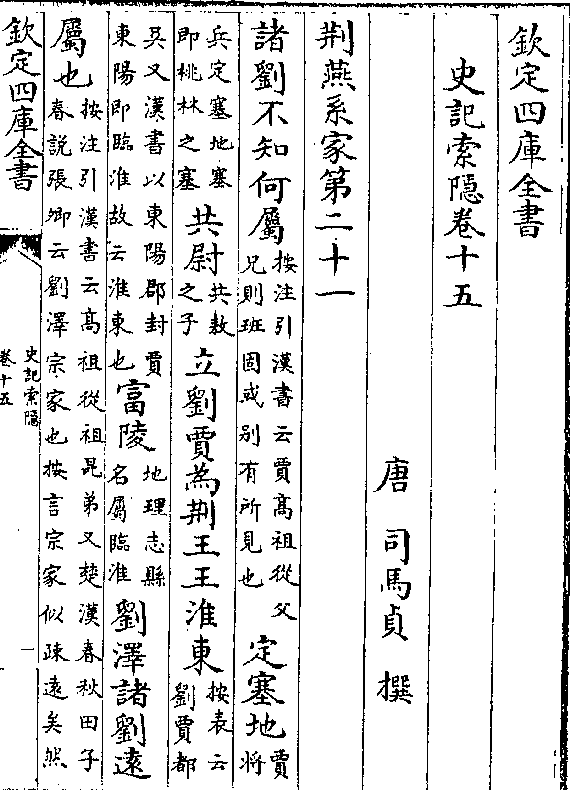 欽定四庫全書
史記索隱卷十五
唐 司馬貞 撰
荆燕系家第二十一
諸劉不知何屬按注引漢書云賈髙祖從父兄則班固或别有所見也定塞地賈將
兵定塞地塞即桃林之塞共尉共敖之子立劉賈為荆王王淮東按表云劉賈都
吳又漢書以東陽郡封賈東陽即臨淮故云淮東也富陵地理志縣名屬臨淮劉澤諸劉遠
屬也按注引漢書云髙祖從祖昆弟又楚漢春秋田子春說張卿云劉澤宗家也按言宗家似疎遠矣然
欽定四庫全書
史記索隱
卷十五
一